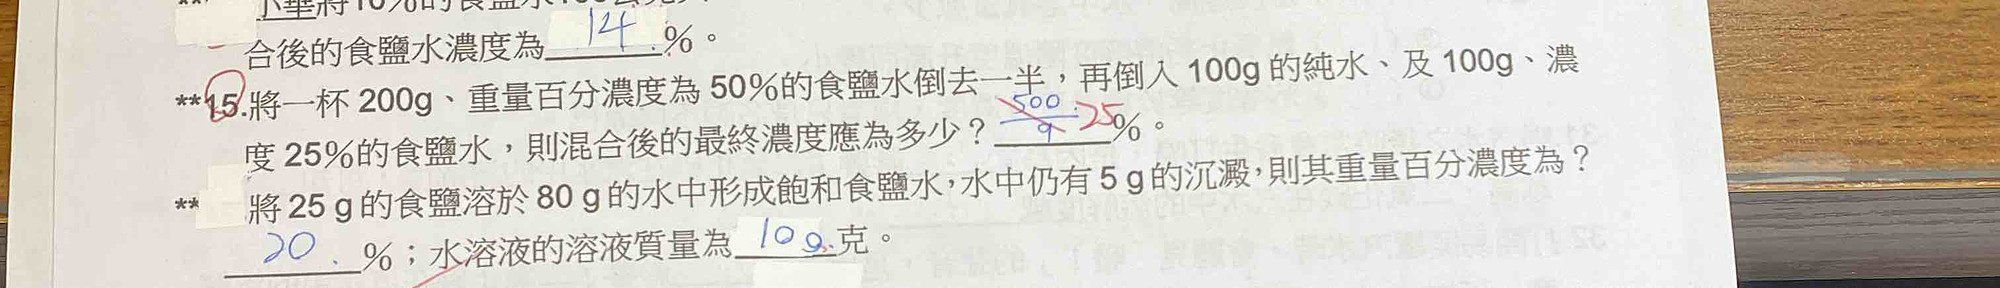 小華將10%的食鹽水100公克
合後的食鹽水濃度為 14 %。
**15.將一杯 200g、重量百分濃度為 50%的食鹽水倒去一半，再倒入 100g 的純水、及 100g、濃
度 25%的食鹽水，則混合後的最終濃度應為多少？ 500/9 25 %。
** 將 25 g 的食鹽溶於 80 g 的水中形成飽和食鹽水，水中仍有 5 g 的沉澱，則其重量百分濃度為？
20 %；水溶液的溶液質量為 100 克。